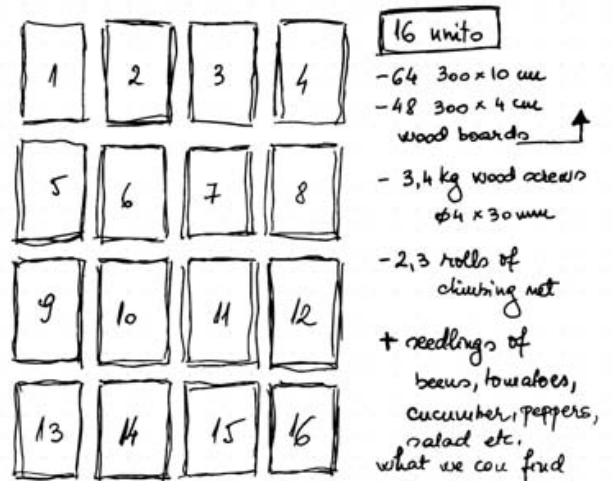 1 2 3 4
5 6 7 8
9 10 11 12
13 14 15 16
16 units
-64 300 x 10 cm
-48 300 x 4 cm
wood boards
- 3,4 kg wood screws
ø4 x 30 mm
-2,3 rolls of
climbing net
+ seedlings of
beens, tomatoes,
cucumber, peppers,
salad etc.
what we can find